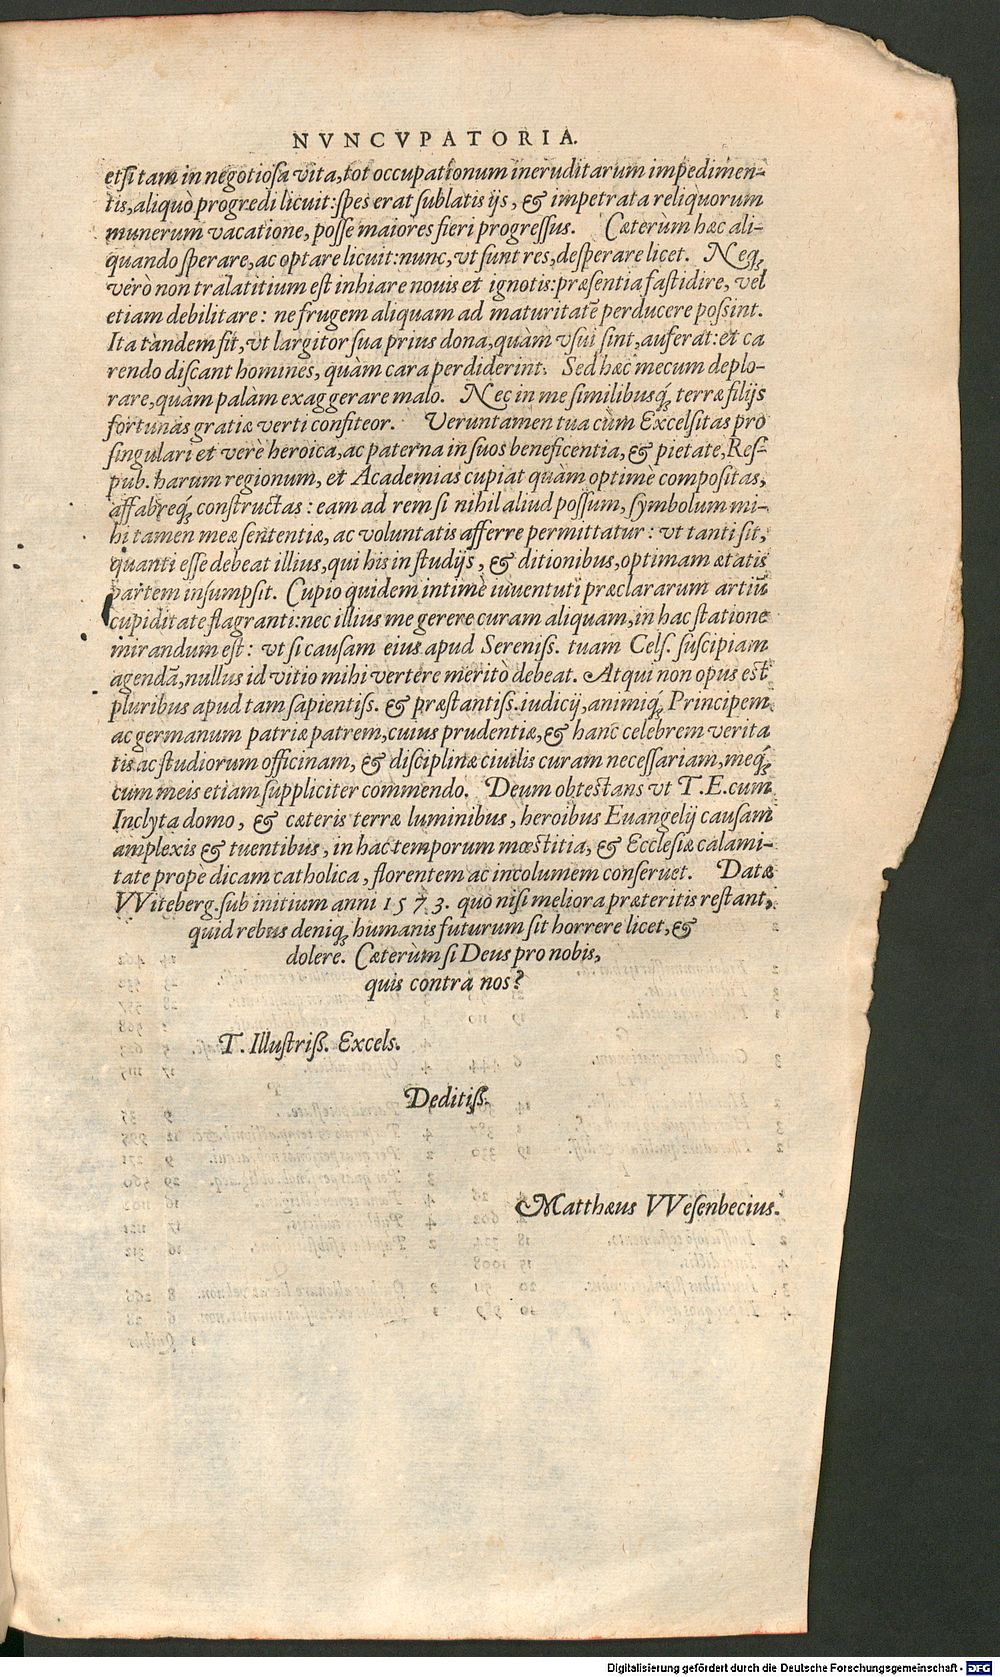 NVNCVPATORIA.
etsi tam in negotiosa vita, tot occupationum ineruditarum impedimen-
tis, aliquò progredi licuit: spes erat sublatis ijs, & impetrata reliquorum
munerum vacatione, posse maiores fieri progressus. Cæterùm hæc ali-
quando sperare, ac optare licuit: nunc, vt sunt res, desperare licet. Neq;
verò non tralatitium est inhiare nouis et ignotis: præsentia fastidire, vel
etiam debilitare: ne frugem aliquam ad maturitatē perducere possint.
Ita tandem fit, vt largitor sua prius dona, quàm vsui sint, auferat: et ca
rendo discant homines, quàm cara perdiderint. Sed hæc mecum deplo-
rare, quàm palàm exaggerare malo. Nec in me similibusq́; terræ filijs
fortunas gratiæ verti confiteor. Veruntamen tua cùm Excelsitas pro
singulari et verè heroica, ac paterna in suos beneficentia, & pietate, Res-
pub. harum regionum, et Academias cupiat quàm optimè compositas,
affabreq́; constructas: eam ad rem si nihil aliud possum, symbolum mi-
hi tamen meæ sententiæ, ac voluntatis afferre permittatur: vt tanti sit,
quanti esse debeat illius, qui his in studijs, & ditionibus, optimam ætatis
partem insumpsit. Cupio quidem intimè iuuentuti præclararum artiū
cupiditate flagranti: nec illius me gerere curam aliquam, in hac statione
mirandum est: vt si causam eius apud Sereniss. tuam Cels. suscipiam
agendā, nullus id vitio mihi vertere meritò debeat. Atqui non opus est
pluribus apud tam sapientiss. & præstantiss. iudicij, animiq́; Principem
ac germanum patriæ patrem, cuius prudentiæ, & hanc celebrem verita
tis ac studiorum officinam, & disciplinæ ciuilis curam necessariam, meq́;
cum meis etiam suppliciter commendo. Deum obtestans vt T. E. cum
Inclyta domo, & cæteris terræ luminibus, heroibus Euangelij causam
amplexis & tuentibus, in hac temporum mœstitia, & Ecclesiæ calami-
tate propè dicam catholica, florentem ac incolumem conseruet. Datæ
VViteberg. sub initium anni 1573. quo nisi meliora præteritis restant,
quid rebus deniq; humanis futurum sit horrere licet, &
dolere. Cæterùm si Deus pro nobis,
quis contra nos?
T. Illustriss. Excels.
Deditiss.
Matthæus VVesenbecius.
Digitalisierung gefördert durch die Deutsche Forschungsgemeinschaft - DFG